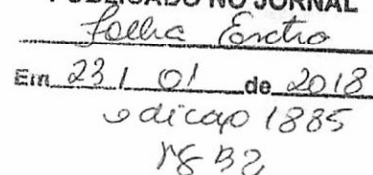 PUBLICADO NO JORNAL
Folha Exctro
Em 23 / 01 de 2018
edicao 1885
PG B2